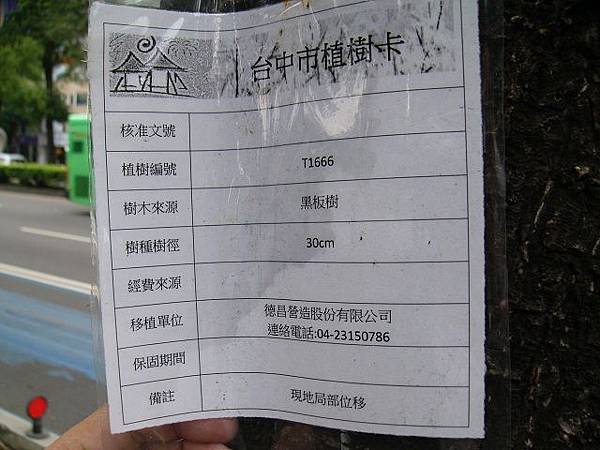 台中市植樹卡
核准文號
植樹編號 T1666
樹木來源 黑板樹
樹種樹徑 30cm
經費來源
移植單位 德昌營造股份有限公司
連絡電話:04-23150786
保固期間
備註 現地局部位移